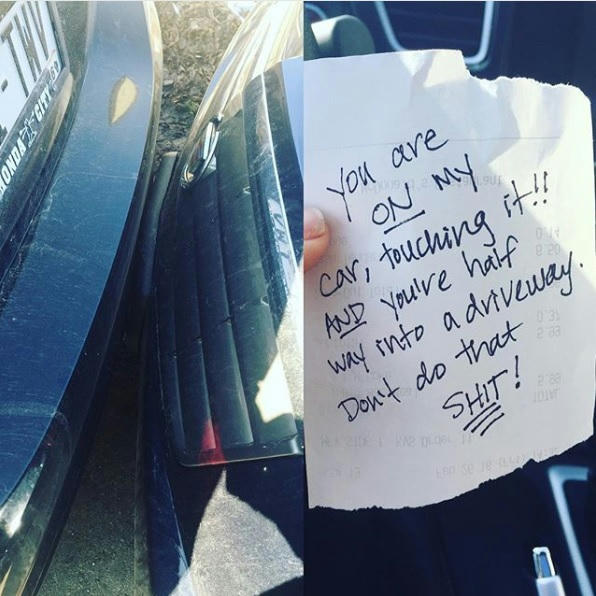 TWV
HONDA CITY
You are
ON MY
car, touching it!!
AND you're half
way into a driveway.
Don't do that
SHIT!